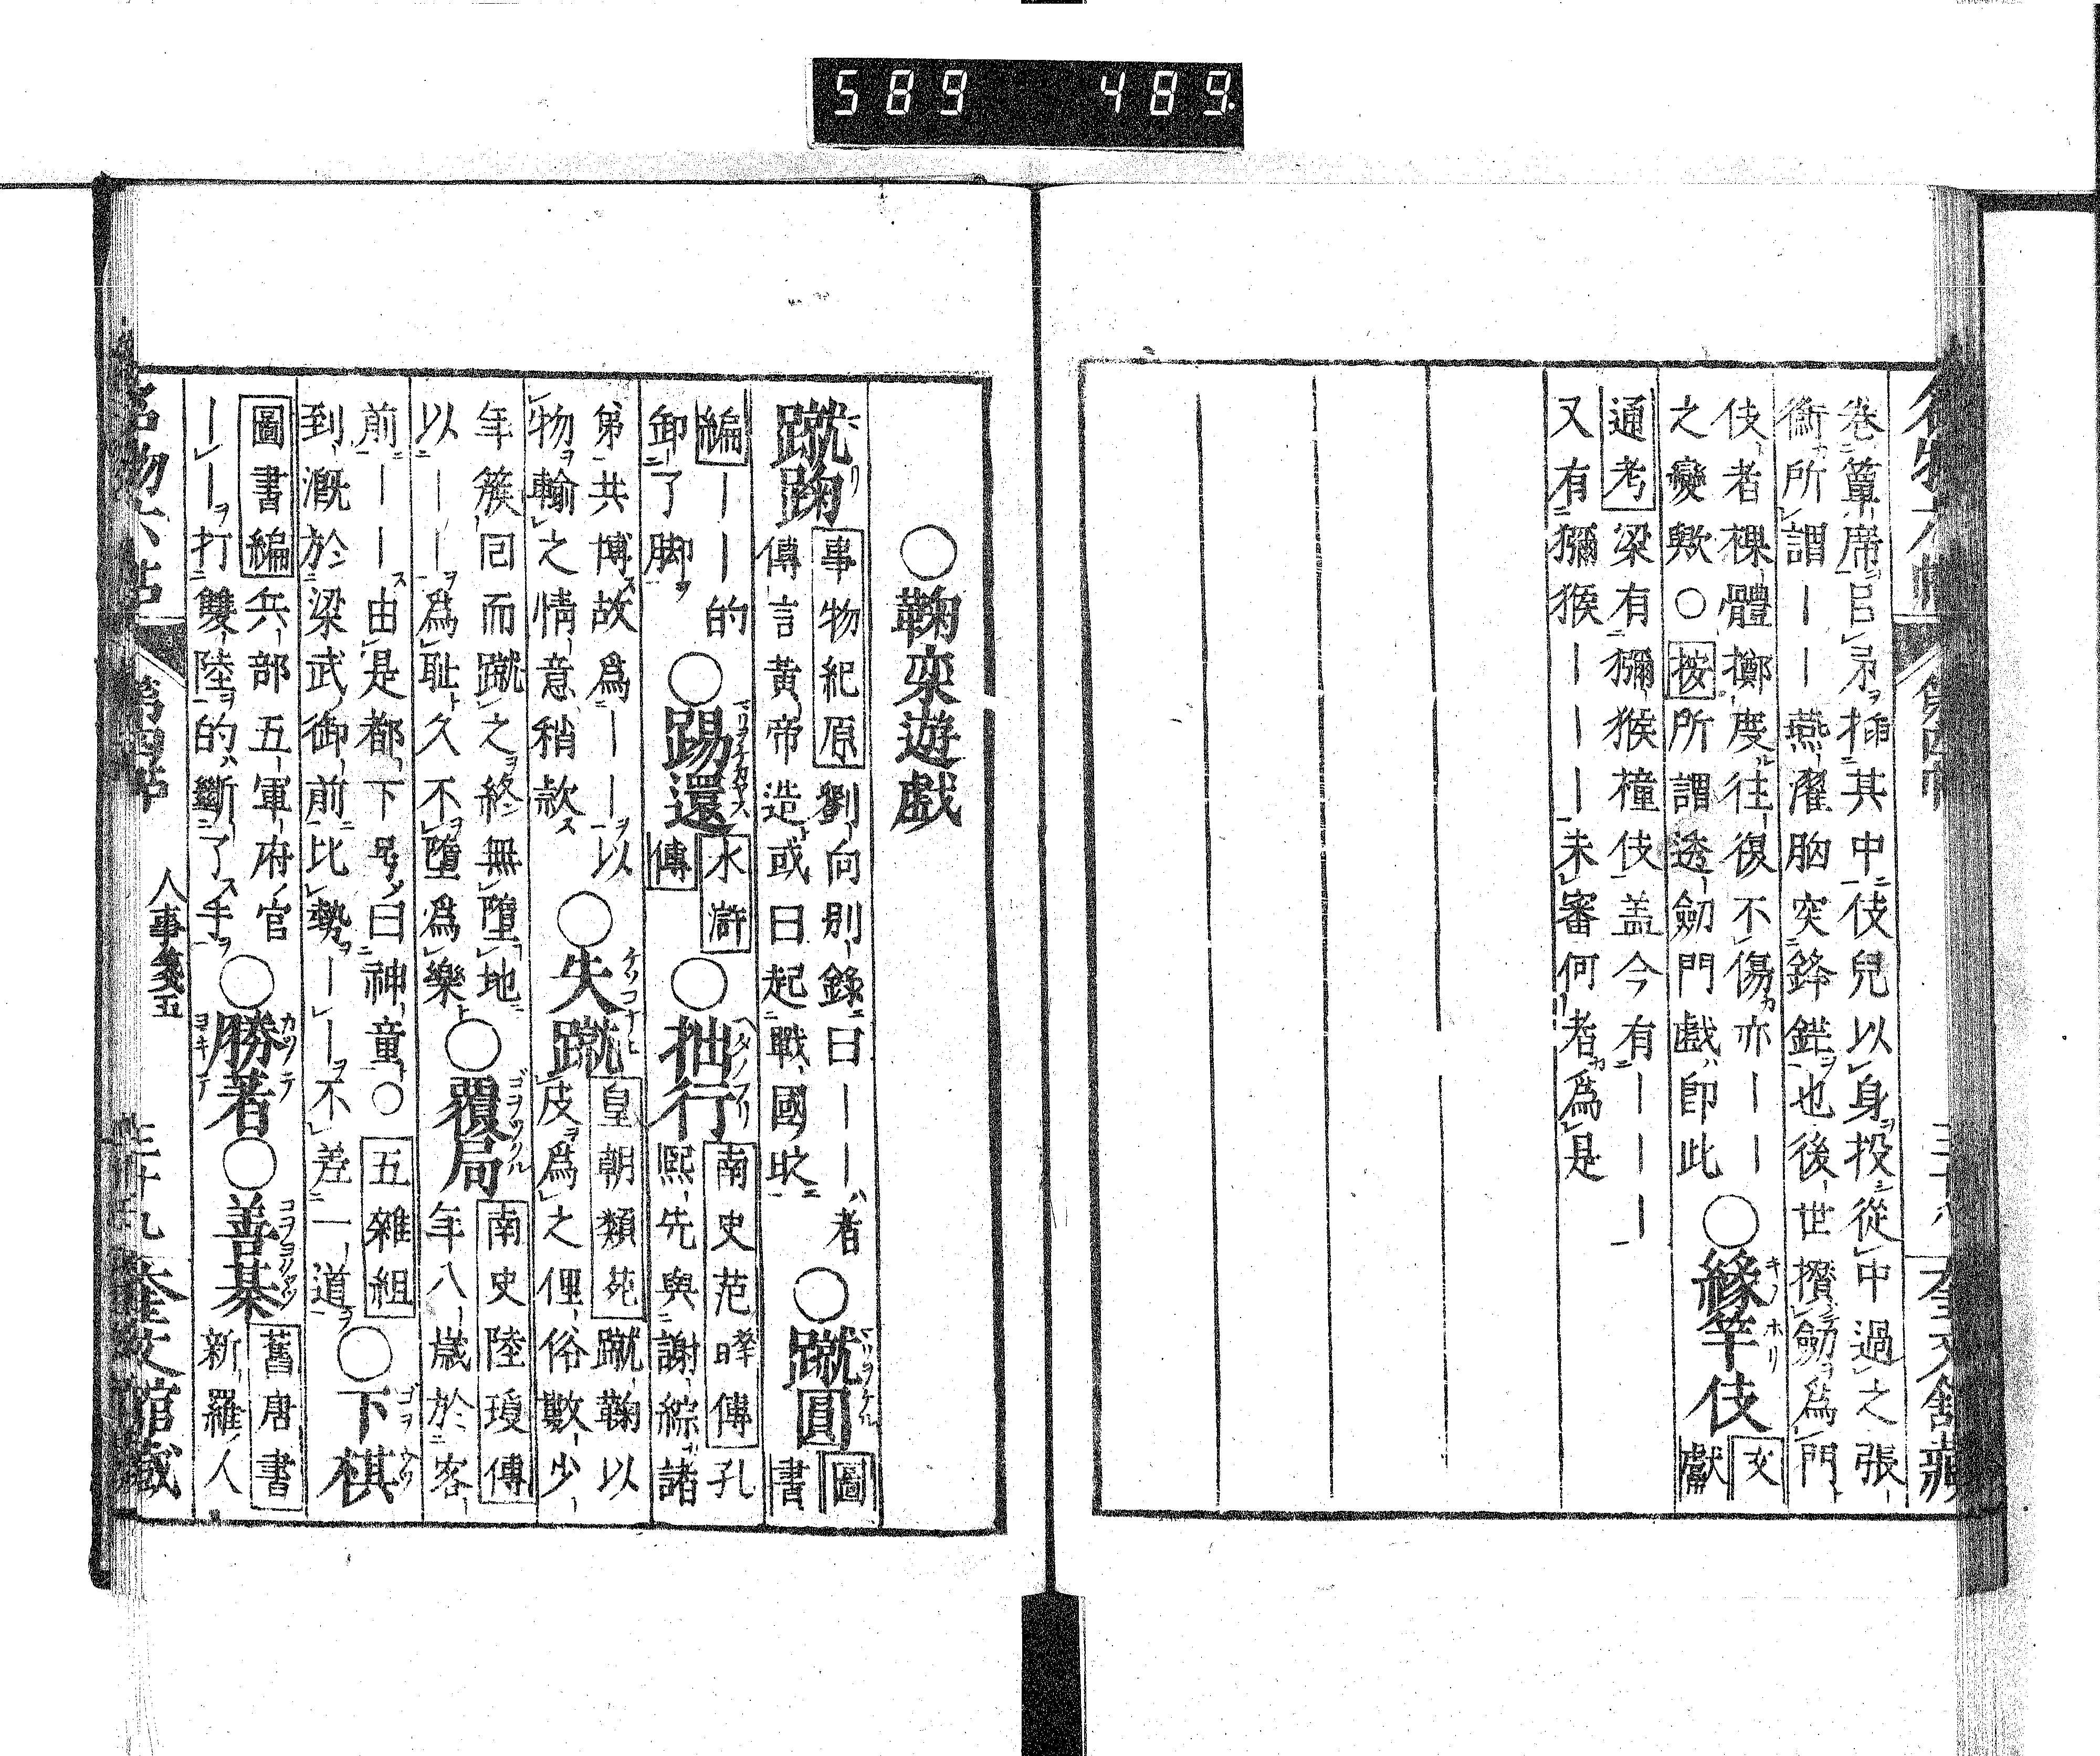 589 489
卷簟席官弟插其中伎兒以身投從中過之張
衞所謂——燕濯胸突鋒鋩也後世攢劒爲門
伎者裸體擲度往復不傷亦——
之變歟○按所謂透劒門戲即此
○緣竿伎
文
獻
通考梁有獼猴橦伎盖今有———
又有獼猴———未審何者爲是
○鞠栾遊戲
蹴鞠
事物紀原劉向別錄曰——者
傳言黃帝造或曰起戰國时
○蹴圓
圖
書
編——的
卸了脚
○踢還
水滸
傳
○拙行
南史范曄傳孔
熙先與謝綜諸
第共博故爲——以
物輸之情意稍款
○失蹴
皇朝類苑蹴鞠以
皮爲之俚俗數少
年簇囘而蹴之終無墮地
以——爲耻久不墮爲樂
○覆局
南史陸瓊傳
年八歲於客
前——由是都下号曰神童○五雜組
到溉於梁武御前比勢——不差一道
○下棋
圖書編兵部五軍府官
——打雙陸的斷了手
○勝著
○善棊
舊唐書
新羅人
名物六帖 第四帖 人事箋五
奎文館藏